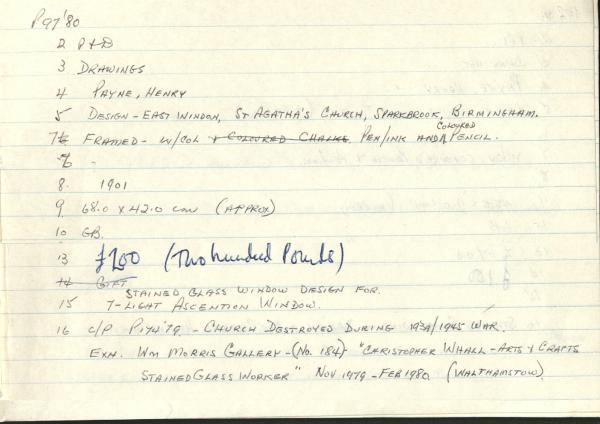 P97'80
2 P+D
3 DRAWINGS
4 PAYNE, HENRY
5 DESIGN - EAST WINDOW, ST AGATHA'S CHURCH, SPARKBROOK, BIRMINGHAM.
7 FRAMED - W/COL + COLOURED CHALKS PEN/INK AND COLOURED PENCIL.
6 -
8. 1901
9 68.0 x 42.0 cm (APPROX)
10 GB.
13 £200 (Two hundred Pounds)
14 GIFT
STAINED GLASS WINDOW DESIGN FOR.
15 7-LIGHT ASCENTION WINDOW.
16 C/P P174'79 - CHURCH DESTROYED DURING 1939/1945 WAR.
EXH. WM MORRIS GALLERY - (NO. 184) - "CHRISTOPHER WHALL - ARTS & CRAFTS
STAINED GLASS WORKER" NOV 1979 - FEB 1980 (WALTHAMSTOW).